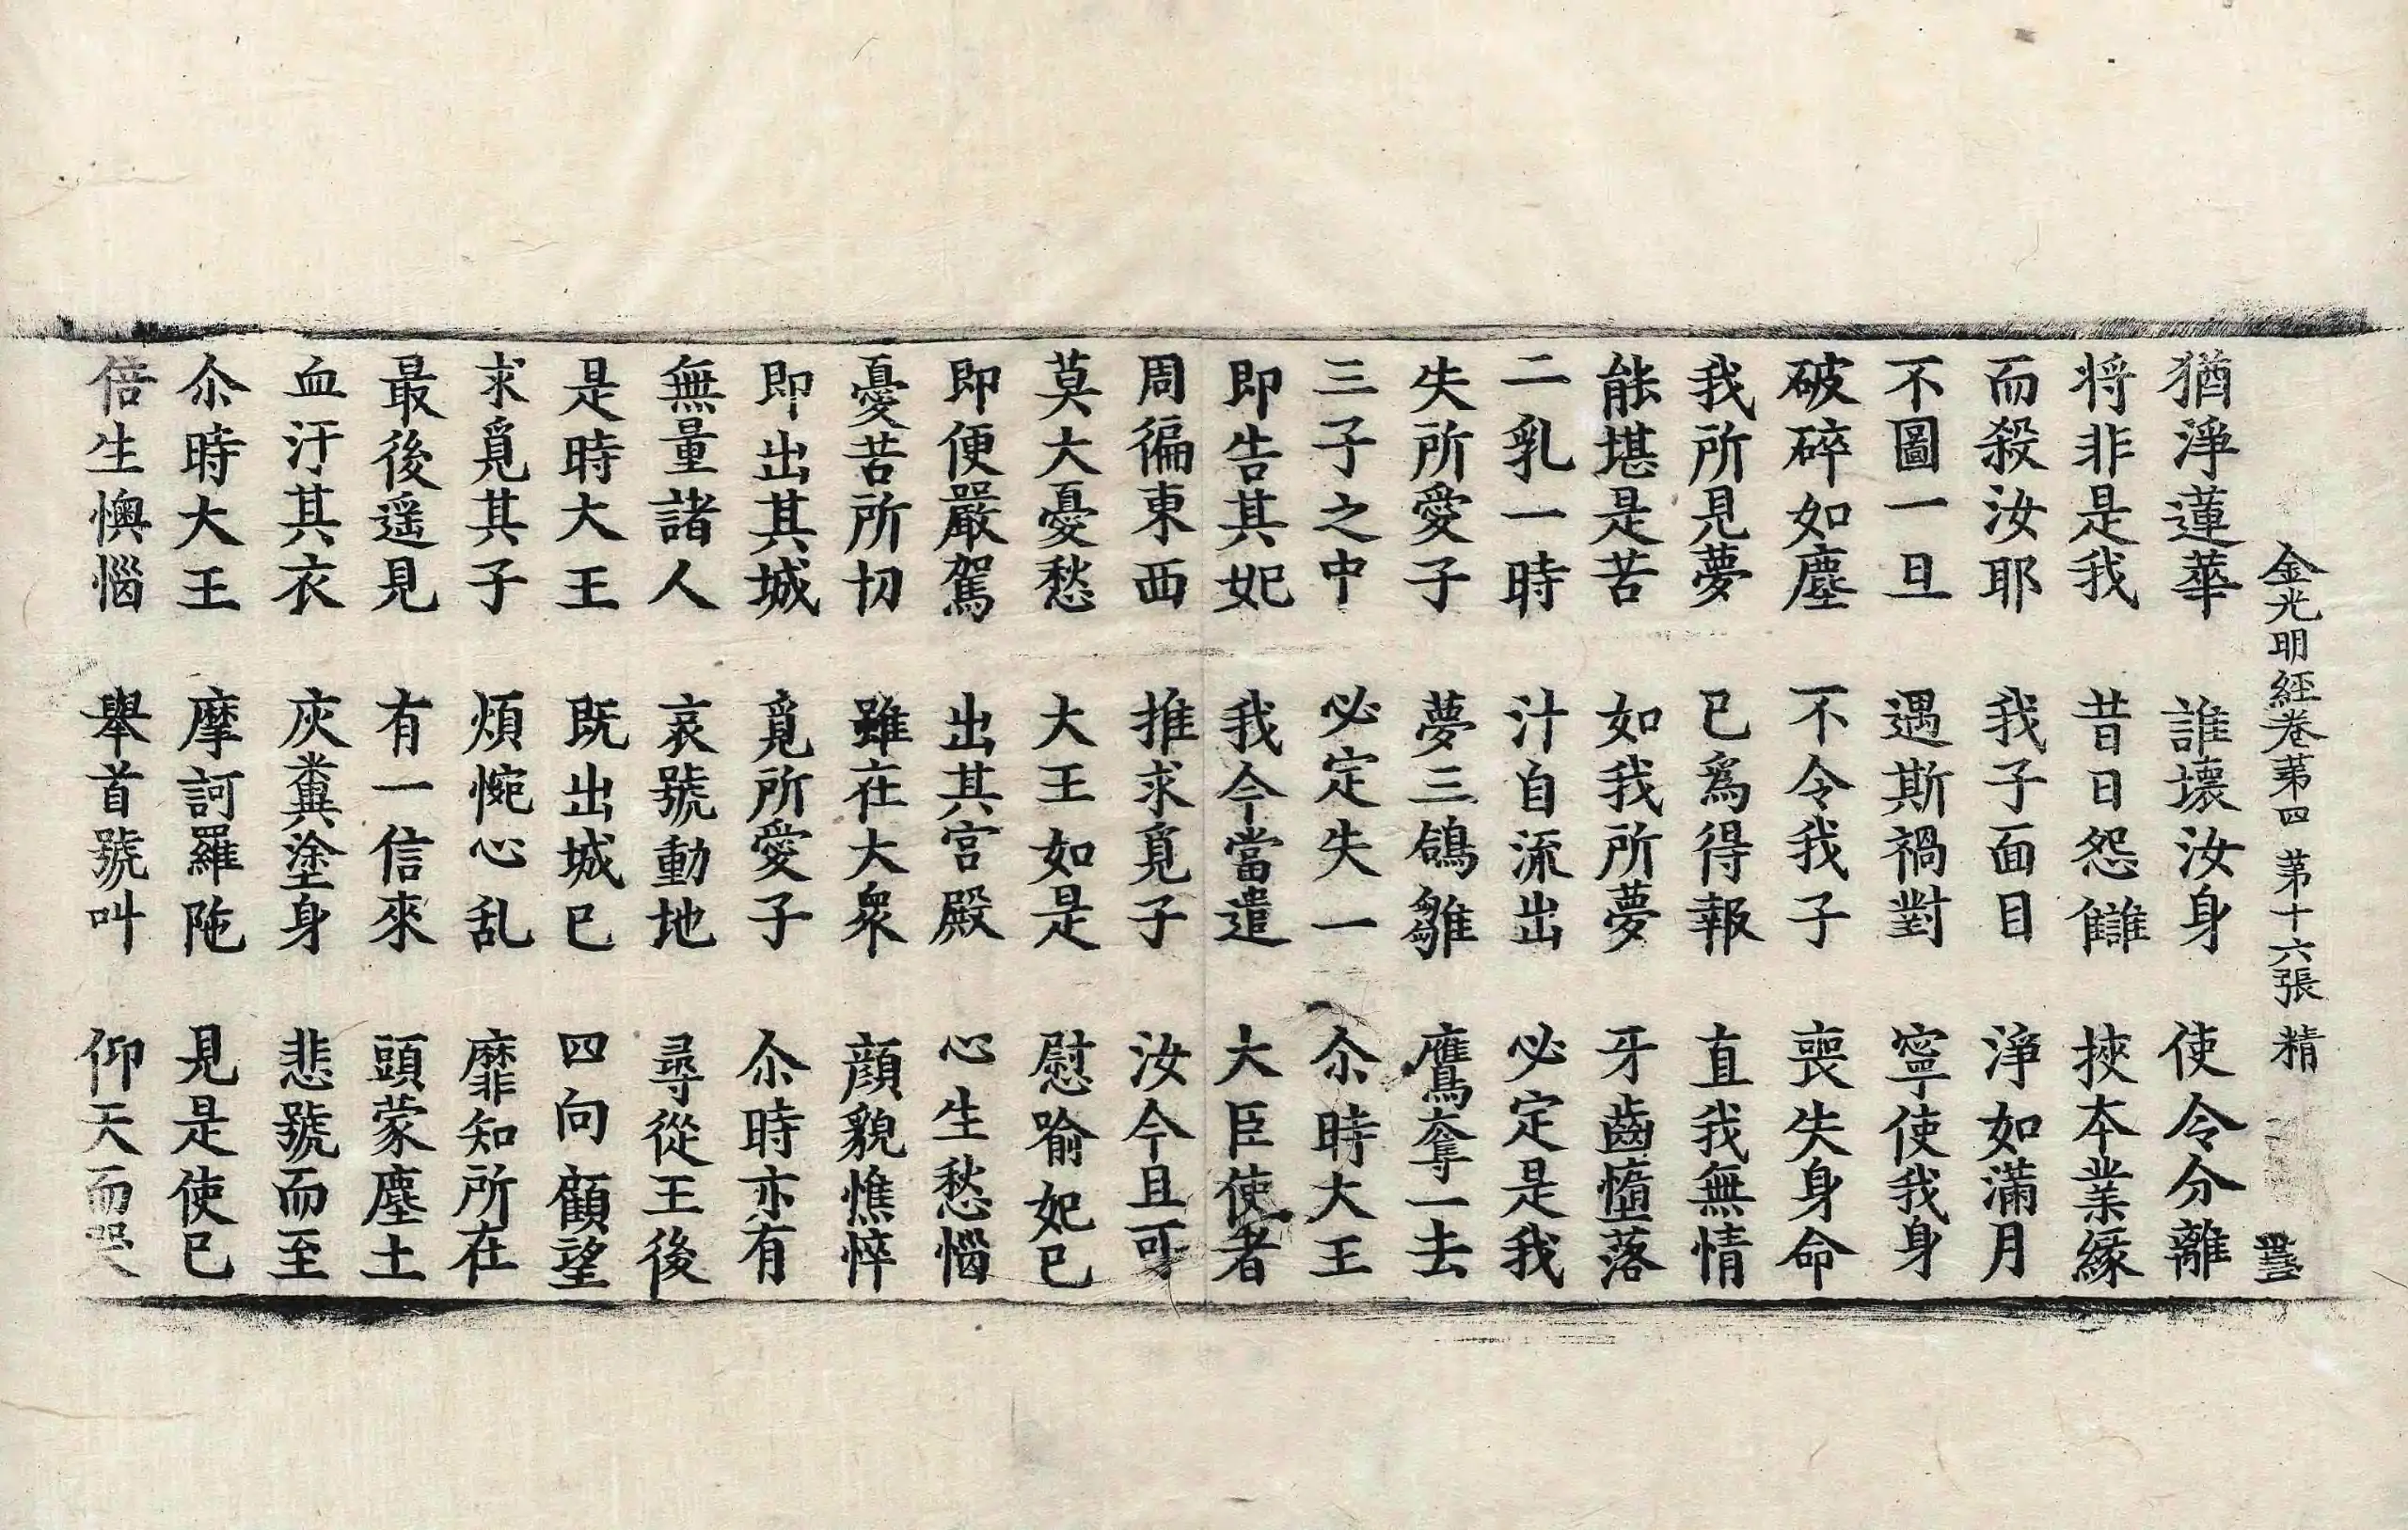 金光明經卷第四 第十六張 精
猶淨蓮華 誰壞汝身 使令分離
将非是我 昔日怨讎 挾本業緣
而殺汝耶 我子面目 淨如滿月
不圖一旦 遇斯禍對 寧使我身
破碎如塵 不令我子 喪失身命
我所見夢 已爲得報 直我無情
能堪是苦 如我所夢 牙齒墮落
二乳一時 汁自流出 必定是我
失所愛子 夢三鴿雛 鷹奪一去
三子之中 必定失一 尒時大王
即告其妃 我今當遣 大臣使者
周徧東西 推求覓子 汝今且可
莫大憂愁 大王如是 慰喻妃已
即便嚴駕 出其宮殿 心生愁惱
憂苦所切 雖在大衆 顔貌憔悴
即出其城 覓所愛子 尒時亦有
無量諸人 哀號動地 尋從王後
是時大王 既出城已 四向顧望
求覓其子 煩惋心乱 靡知所在
最後遥見 有一信來 頭蒙塵土
血汙其衣 灰糞塗身 悲號而至
尒時大王 摩訶羅陁 見是使已
倍生懊惱 舉首號叫 仰天而哭